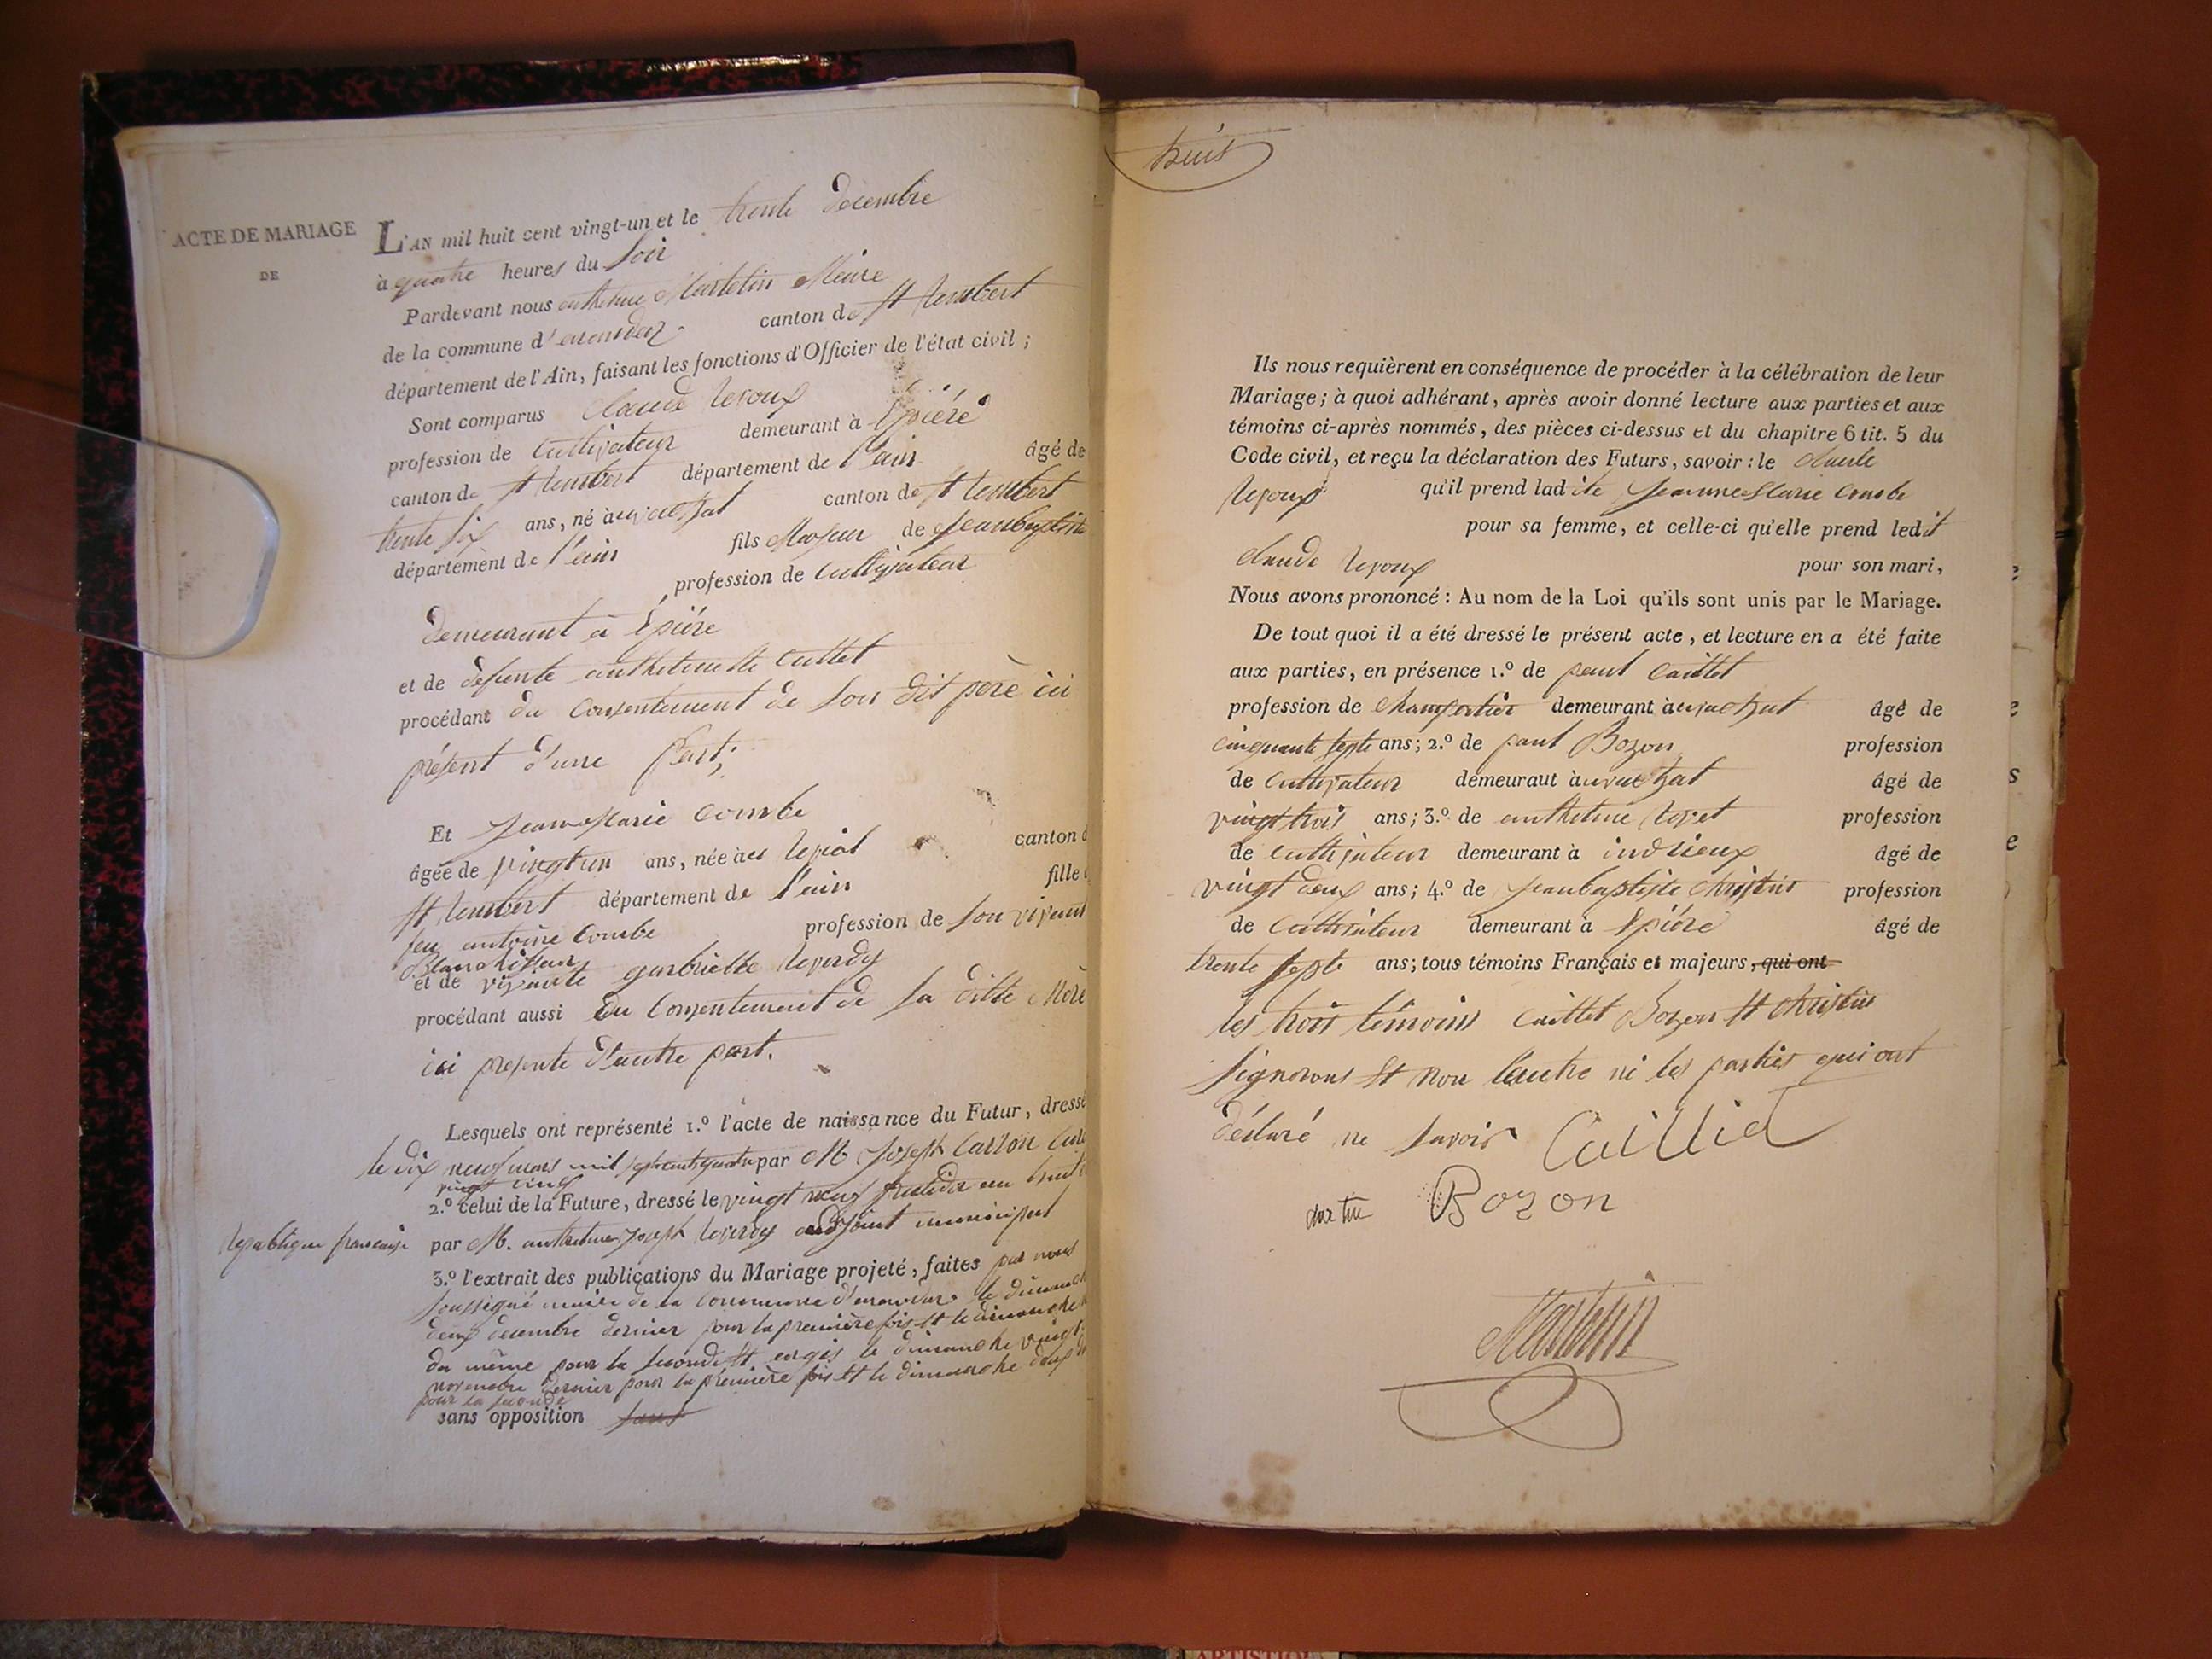 ACTE DE MARIAGE
DE
L'AN mil huit cent vingt-un et le trente decembre
à quatre heures du soir
Pardevant nous Martelin Maire
de la commune d' canton de St
département de l'Ain, faisant les fonctions d'Officier de l'état civil ;
Sont comparus claude
profession de Cultivateur demeurant à
canton de St département de l'ain âgé de
trente six ans, né à canton de St
département de l'ain fils Majeur de Jeanbaptiste
profession de Cultivateur
demeurant à
et de défunte
procédant du Consentement de son dit père ici
présent d'une Part;
Et Jeanne Marie Combe
âgée de vingt un ans, née à canton
St département de l'ain fille
feu antoine Combe profession de son vivant
Blanchisseur
et de vivante
procédant aussi Du Consentement de sa ditte Mère
ici presente d'autre part.
Lesquels ont représenté 1.º l'acte de naissance du Futur, dressé
le dix neuf mars mil sept cent quatre par M Joseph
vingt cinq
2.º celui de la Future, dressé le vingt neuf
republique francaise par M. Joseph adjoint municipal
3.º l'extrait des publications du Mariage projeté, faites par nous
soussigné maire de la Commune le dimanche
deux decembre dernier pour la première fois et le dimanche
du même pour la seconde et le dimanche vingt
novembre dernier pour la première fois et le dimanche deux
pour la seconde
sans opposition sans
trois
Ils nous requièrent en conséquence de procéder à la célébration de leur
Mariage ; à quoi adhérant, après avoir donné lecture aux parties et aux
témoins ci-après nommés, des pièces ci-dessus et du chapitre 6 tit. 5 du
Code civil, et reçu la déclaration des Futurs, savoir : le claude
qu'il prend ladite Jeanne Marie Combe
pour sa femme, et celle-ci qu'elle prend ledit
claude pour son mari,
Nous avons prononcé : Au nom de la Loi qu'ils sont unis par le Mariage.
De tout quoi il a été dressé le présent acte, et lecture en a été faite
aux parties, en présence 1.º de paul Caillet
profession de demeurant à âgé de
cinquante septe ans ; 2.º de paul Bozon profession
de Cultivateur demeuraut à âgé de
vingt trois ans ; 3.º de profession
de Cultivateur demeurant à indrieux âgé de
vingt deux ans ; 4.º de Jeanbaptiste Christin profession
de Cultivateur demeurant à âgé de
trente septe ans ; tous témoins Français et majeurs, qui ont
les trois témoins Caillet Bozon et Christin
signerons et non l'autre ni les parties qui ont
déclaré ne savoir Caillied
Bozon
Martelin